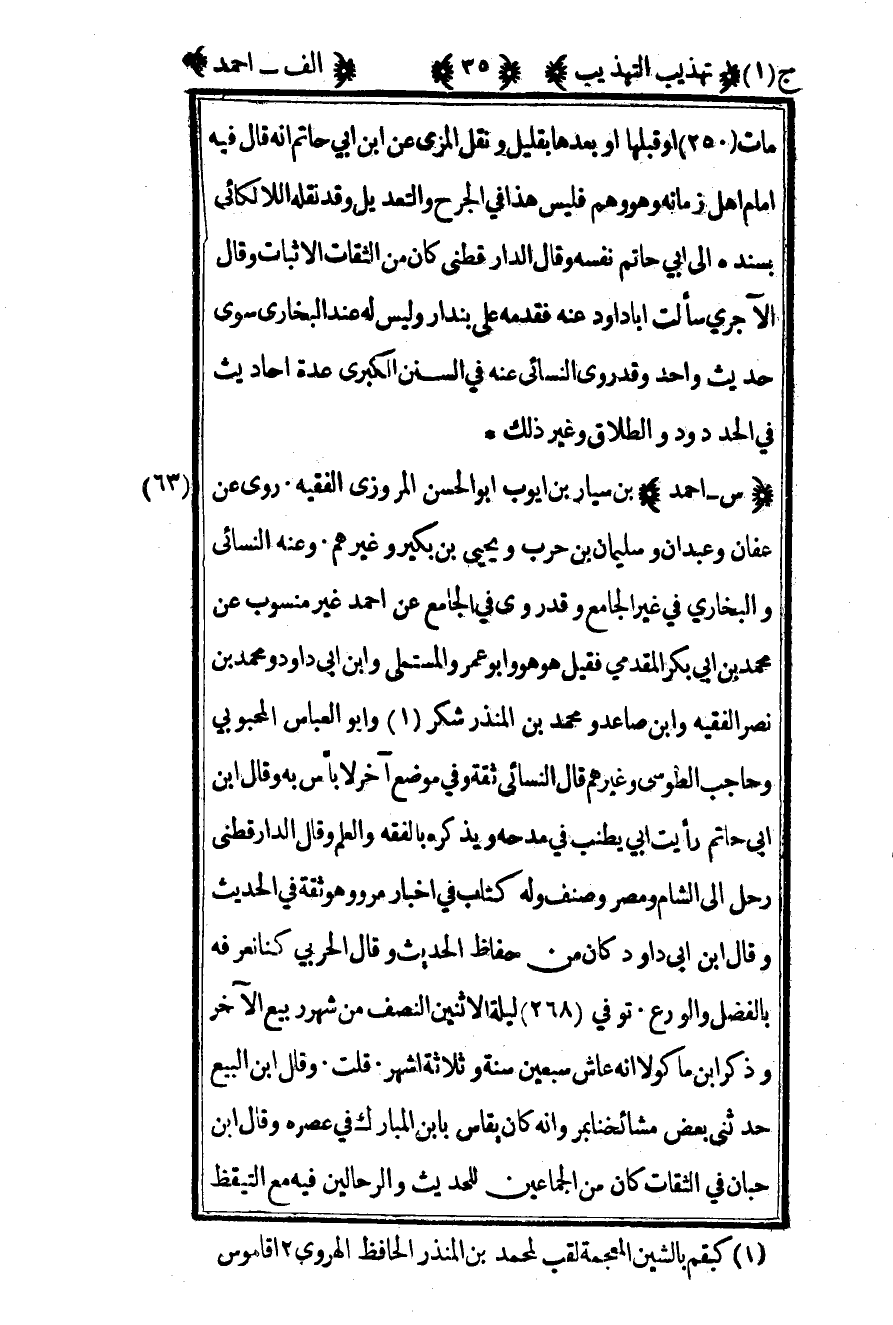 ج(١) ﴿ تهذيب التهذيب ﴾ ﴿ ٣٥ ﴾ ﴿ الف ـ احمد ﴾
مات (٢٥٠) او قبلها او بعدها بقليل و نقل المزى عن ابن ابي حاتم انه قال فيه
امام اهل زمانه وهو وهم فليس هذا في الجرح والتعديل وقد نقله اللالكائي
بسنده الى ابي حاتم نفسه وقال الدار قطنى كان من الثقات الاثبات وقال
الآجري سألت ابا داود عنه فقدمه على بندار وليس له عند البخارى سوى
حديث واحد وقد روى النسائى عنه في السنن الكبرى عدة احاديث
في الحدود و الطلاق وغير ذلك *
﴿ س ـ احمد ﴾ بن سيار بن ايوب ابو الحسن المروزى الفقيه · روى عن (٦٣)
عفان وعبدان و سليمان بن حرب و يحيى بن بكير و غيرهم · وعنه النسائى
و البخاري في غير الجامع و قد روى في الجامع عن احمد غير منسوب عن
محمد بن ابي بكر المقدمي فقيل هو هو وابو عمر و المستملى وابن ابى داود و محمد بن
نصر الفقيه وابن صاعد و محمد بن المنذر شكر (١) وابو العباس المحبوبي
وحاجب الطوسى وغيرهم قال النسائى ثقة وفي موضع آخر لا بأس به وقال ابن
ابي حاتم رأيت ابي يطنب في مدحه ويذكره بالفقه والعلم وقال الدار قطنى
رحل الى الشام ومصر وصنف وله كتاب في اخبار مرو وهو ثقة في الحديث
و قال ابن ابى داود كان من حفاظ الحديث و قال الحربي كنا نعرفه
بالفضل والورع · توفي (٢٦٨) ليلة الاثنين النصف من شهر ربيع الآخر
و ذكر ابن ماكولا انه عاش سبعين سنة و ثلاثة اشهر · قلت · وقال ابن البيع
حدثنى بعض مشائخنا بمر وانه كان يقاس بابن المبارك في عصره وقال ابن
حبان في الثقات كان من الجماعين للحديث والرحالين فيه مع التيقظ
(١) كبقم بالشين المعجمة لقب لمحمد بن المنذر الحافظ الهروي ١٢ قاموس